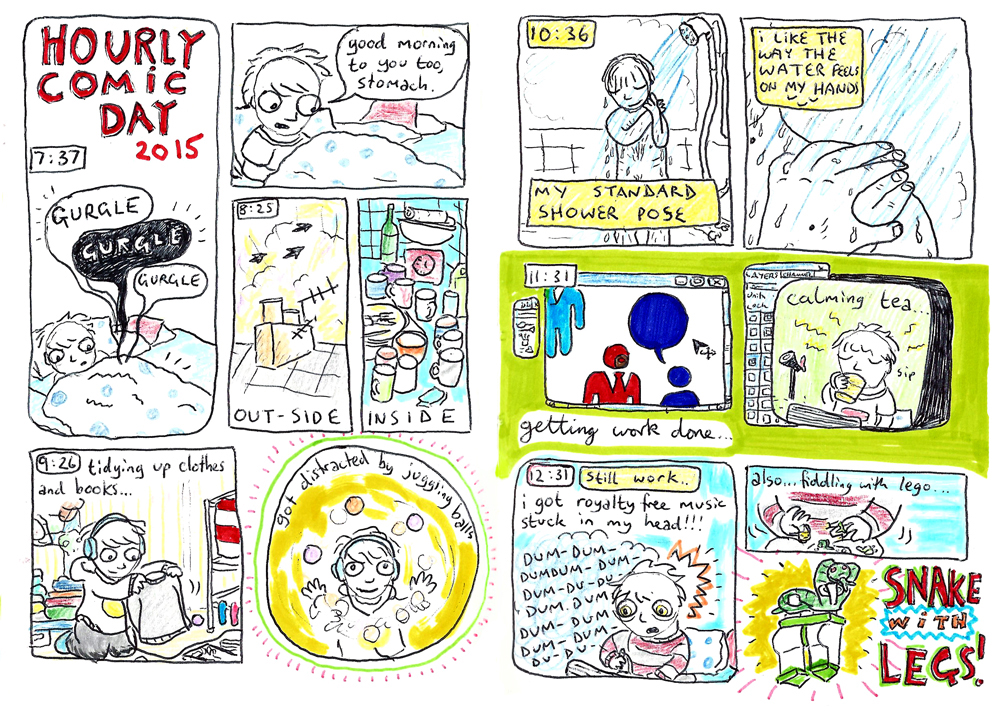 HOURLY
COMIC
DAY
2015
7:37
GURGLE
GURGLE
GURGLE
good morning
to you too,
stomach.
8:25
OUT-SIDE
INSIDE
9:26
tidying up clothes
and books...
got distracted by juggling balls
10:36
MY STANDARD
SHOWER POSE
i LIKE THE
WAY THE
WATER FEELS
ON MY HANDS
11:31
getting work done...
LAYERS
CHANNEL
calming tea...
sip
12:31
Still work..
i got royalty free music
stuck in my head!!!
DUM-DUM-
DUMDUM-DUM
DUM-DU-DU
DUM.DUM
DUM-DUM
DUM-DUM-
DU-DU-
also...fiddling with lego....
SNAKE
WiTH
LEGS!